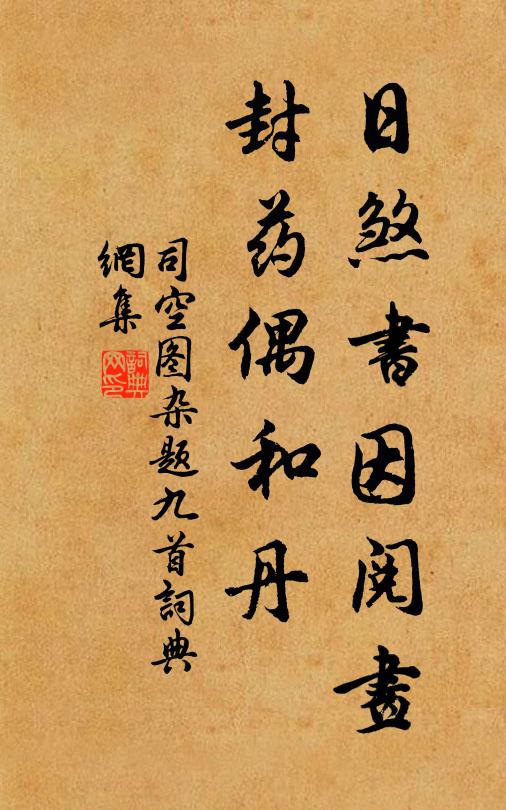 日煞書因阅畫
封药偶和丹
司空图杂题九首詞典
網集
詞典
网印